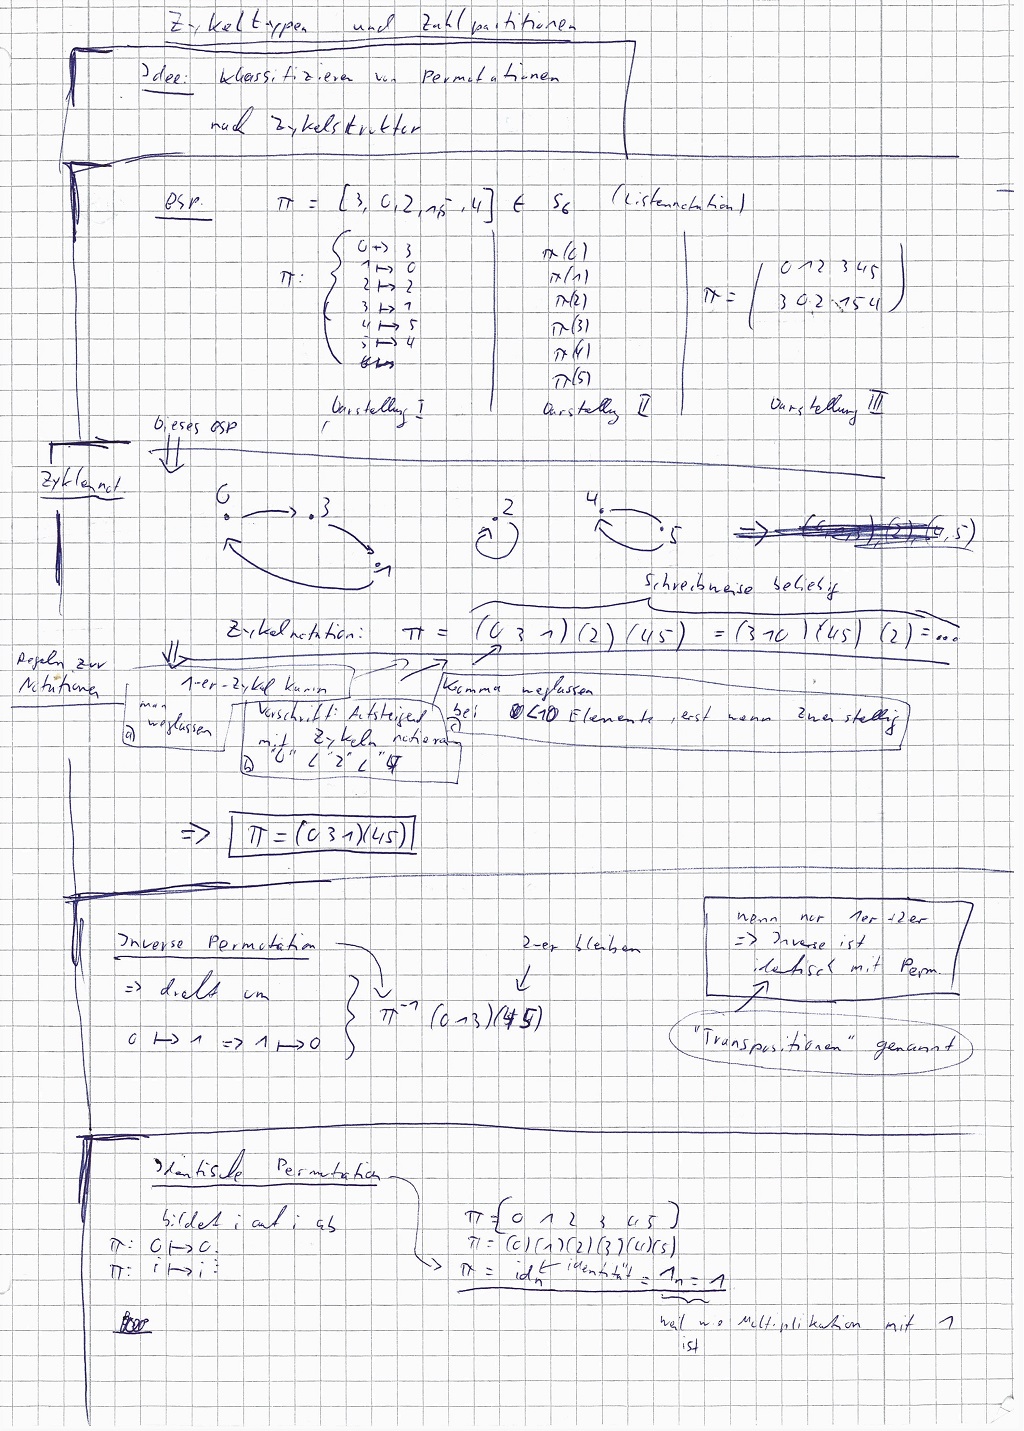 Zykeltypen und Zahlpartitionen
Idee: Klassifizieren von Permutationen
nach Zykelstruktur
BSP. π = [3, 0, 2, 1, 5, 4] ∈ S6 (Listennotation)
π: { 0 ↦ 3
1 ↦ 0
2 ↦ 2
3 ↦ 1
4 ↦ 5
5 ↦ 4
Darstellung I
π(0)
π(1)
π(2)
π(3)
π(4)
π(5)
Darstellung II
π = ( 0 1 2 3 4 5
3 0 2 1 5 4 )
Darstellung III
Dieses BSP
Zyklennot.
0 3 1
2
4 5
=> 4, 5)
Schreibweise beliebig
Zykelnotation: π = (0 3 1) (2) (4 5) = (3 1 0) (4 5) (2) = ...
Regeln zur
Notationen
1-er-Zykel kann
man
weglassen
a)
Vorschrift: Aufsteigend
mit Zykeln notieren
b) "0" < "2" < "4"
Komma weglassen
c) bei <10 Elemente, erst wenn zweistellig
=> π = (0 3 1)(4 5)
Inverse Permutation
=> dreht um
0 ↦ 1 => 1 ↦ 0
2-er bleiben
π⁻¹ (0 1 3)(4 5)
wenn nur 1er + 2er
=> Inverse ist
identisch mit Perm.
"Transpositionen" genannt
Identische Permutation
bildet i auf i ab
π: 0 ↦ 0
π: i ↦ i
π = [0 1 2 3 4 5]
π = (0)(1)(2)(3)(4)(5)
π = idn ← "identität" = 1n = 1
weil wo Multiplikation mit 1
ist